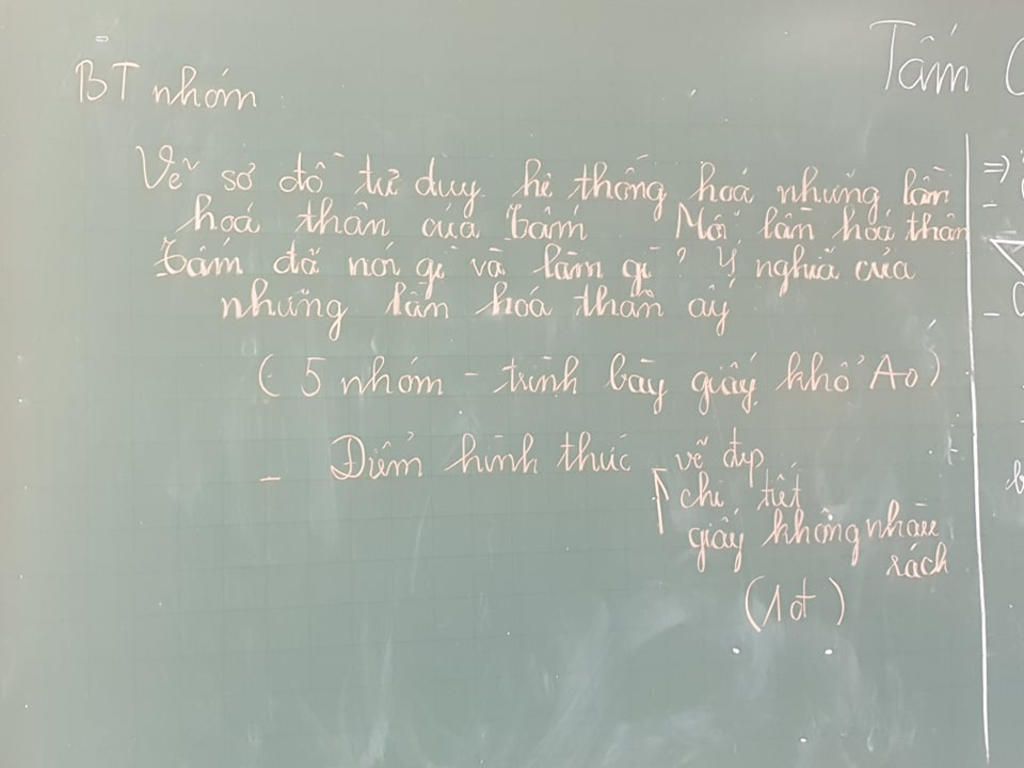 BT nhóm
Tấm
Vẽ sơ đồ tư duy hệ thống hoá những lần
hoá thân của Tấm. Mỗi lần hoá thân
Tấm đã nói gì và làm gì? Ý nghĩa của
những lần hoá thân ấy
(5 nhóm - trình bày giấy khổ Ao)
- Điểm hình thức vẽ đẹp
chi tiết
giấy không nhàu
rách
(1đ)